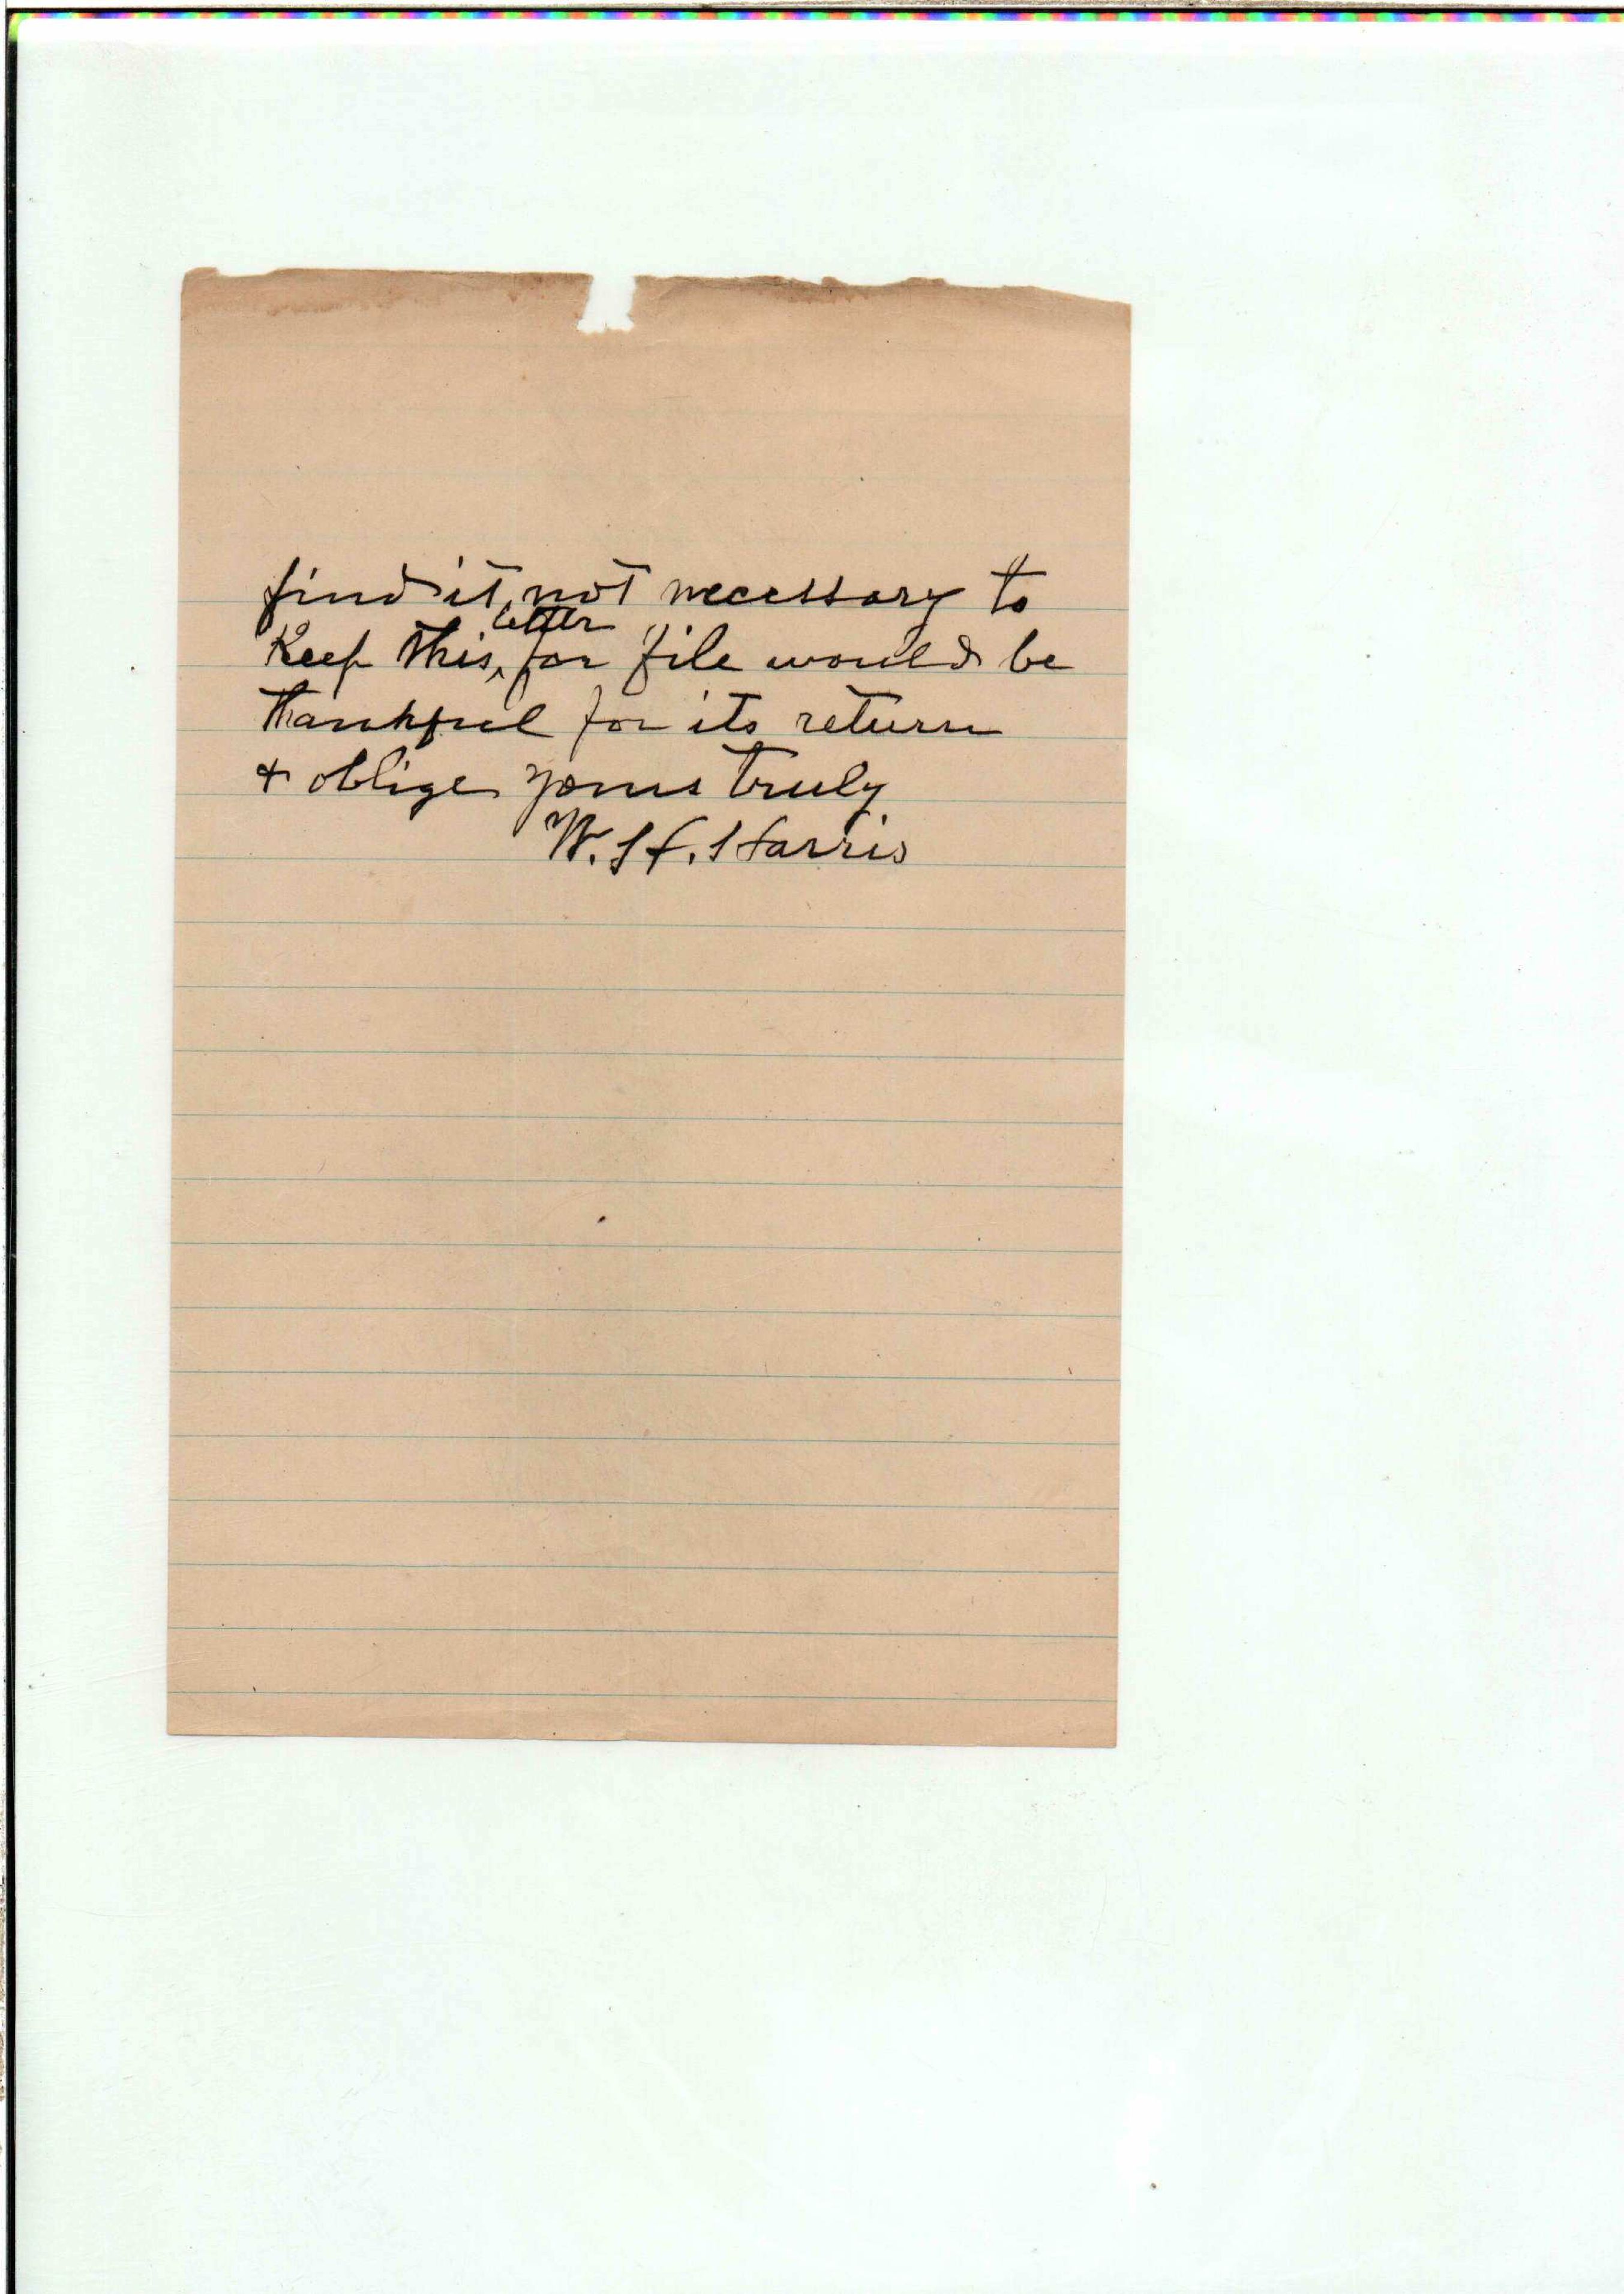 find it not necessary to
Keep this letter for file would be
thankful for its return
+ oblige yours truly
W. H. Harris